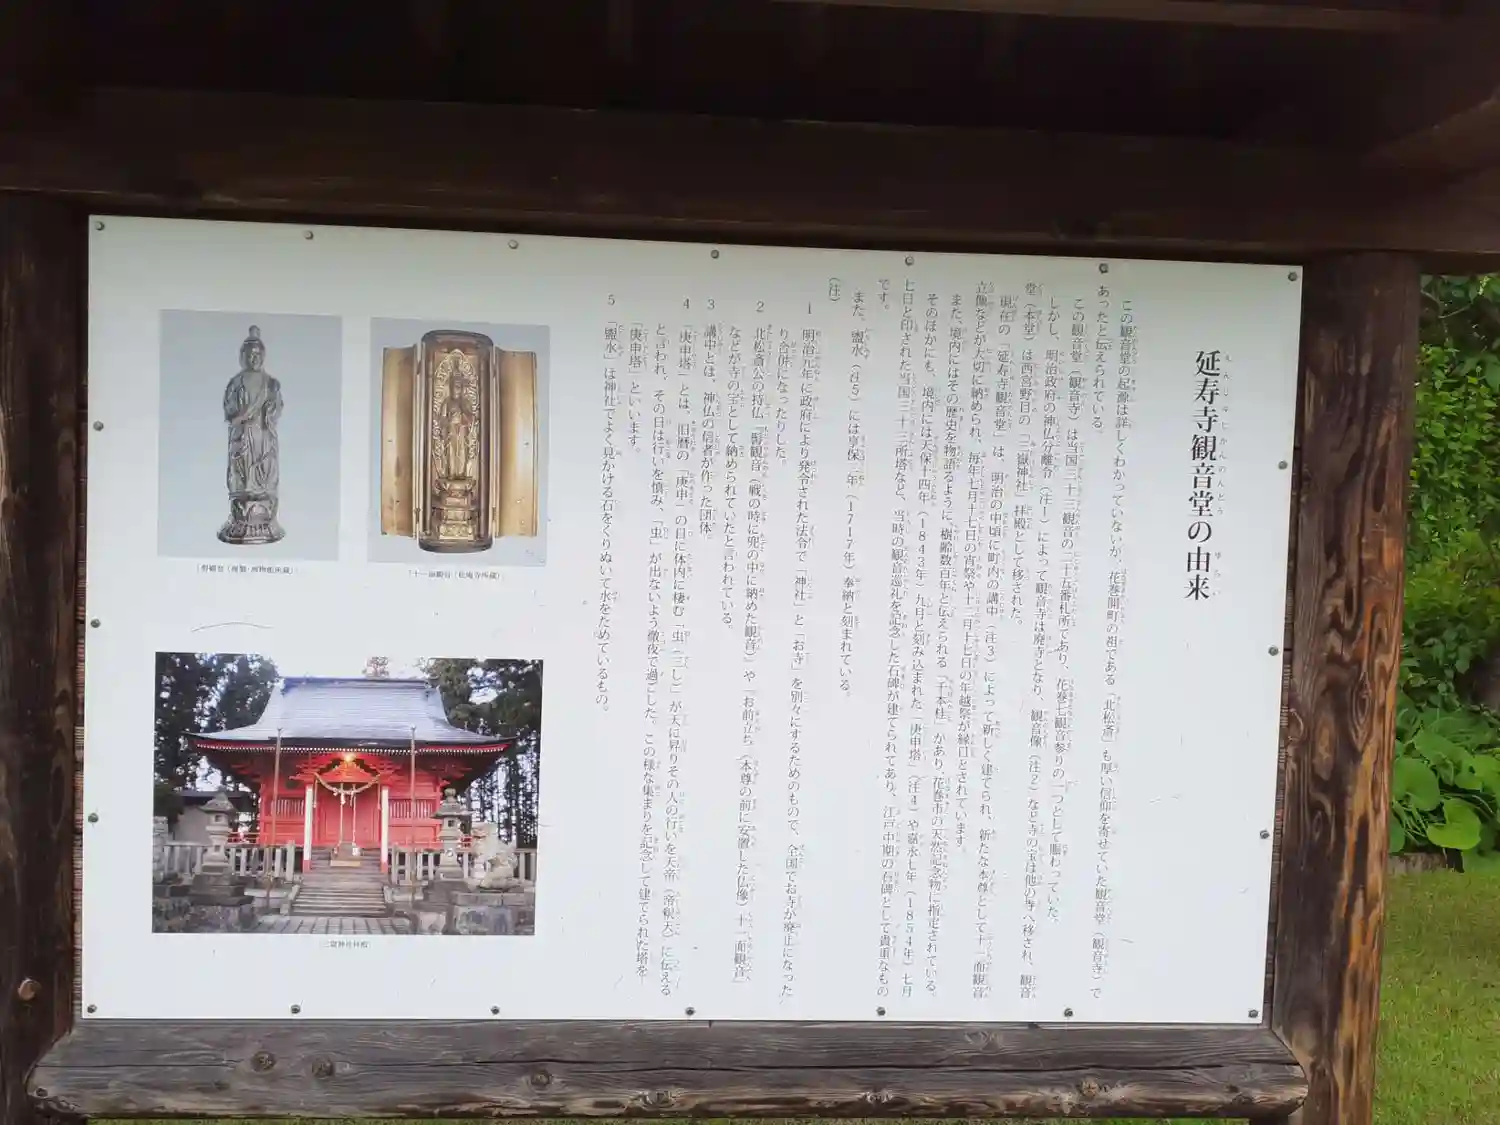 延寿寺観音堂の由来
えんじゅじかんのんどう ゆらい
この観音堂の起源は詳しくわかっていないが、花巻開町の祖である「北松斎」も厚い信仰を寄せていた観音堂（観音寺）で
あったと伝えられている。
この観音堂（観音寺）は当国三十三観音の二十五番札所であり、花巻七観音参りの一つとして賑わっていた。
しかし、明治政府の神仏分離令（注1）によって観音寺は廃寺となり、観音像（注2）など寺の宝は他の寺へ移され、観音
堂（本堂）は西宮野目の「三嶽神社」拝殿として移された。
現在の「延寿寺観音堂」は、明治の中頃に町内の講中（注3）によって新しく建てられ、新たな本尊として十一面観音
立像などが大切に納められ、毎年七月十七日の宵祭や十二月十七日の年越祭が縁日とされています。
また、境内にはその歴史を物語るように、樹齢数百年と伝えられる「千本桂」があり、花巻市の天然記念物に指定されている。
そのほかにも、境内には天保十四年（1843年）九月と刻み込まれた「庚申塔」（注4）や嘉永七年（1854年）七月
七日と印された当国三十三所塔など、当時の観音巡礼を記念した石碑が建てられてあり、江戸中期の石碑として貴重なもの
です。
また、盥水（注5）には享保二年（1717年）奉納と刻まれている。
（注）
1 明治元年に政府により発令された法令で「神社」と「お寺」を別々にするためのもので、全国でお寺が廃止になった
り合併になったりした。
2 北松斎公の持仏『髻観音（戦の時に兜の中に納めた観音）』や「お前立ち（本尊の前に安置した仏像）十一面観音」
などが寺の宝として納められていたと言われている。
3 講中とは、神仏の信者が作った団体。
4 「庚申塔」とは、旧暦の「庚申」の日に体内に棲む「虫（三し）」が天に昇りその人の行いを天帝（帝釈天）に伝える
と言われ、その日は行いを慎み、「虫」が出ないよう徹夜で過ごした、この様な集まりを記念して建てられた塔を
「庚申塔」といいます。
5 「盥水」は神社でよく見かける石をくりぬいて水をためているもの。